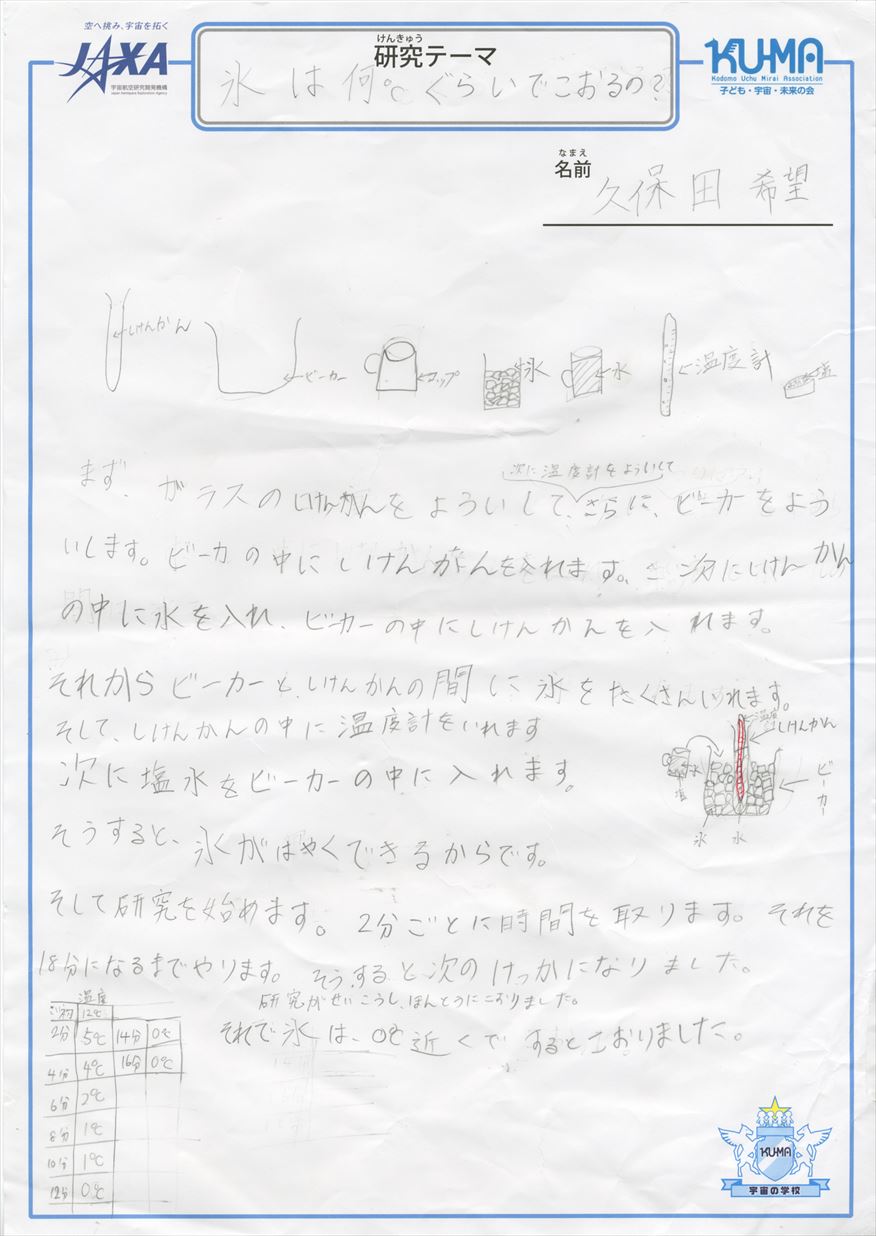 空へ挑み、宇宙を拓く
JAXA
宇宙航空研究開発機構
Japan Aerospace Exploration Agency
けんきゅう
研究テーマ
氷は何℃ぐらいでこおるの?
KU-MA
Kodomo Uchu Mirai Association
子ども・宇宙・未来の会
なまえ
名前
久保田 希望
しけんかん
ビーカー
コップ
氷
水
温度計
塩
次に温度計をよういして
まず、ガラスのしけんかんをよういして、さらに、ビーカーをよう
いします。ビーカの中にしけんかんを入れます。次にしけんかん
の中に水を入れ、ビーカーの中にしけんかんを入れます。
それからビーカーと、しけんかんの間に氷をたくさんいれます。
そして、しけんかんの中に温度計をいれます
次に塩水をビーカーの中に入れます。
温度計
しけんかん
水
塩
ビーカー
氷
水
そうすると、氷がはやくできるからです。
そして研究を始めます。2分ごとに時間を取ります。それを
18分になるまでやります。そうすると次のけっかになりました。
研究がせいこうし、ほんとうにこおりました。
それで氷は、0℃近くですることおりました。
温度
さい初 12℃
2分 5℃ 14分 0℃
4分 4℃ 16分 0℃
6分 2℃
8分 1℃
10分 1℃
12分 0℃
KU-MA
宇宙の学校